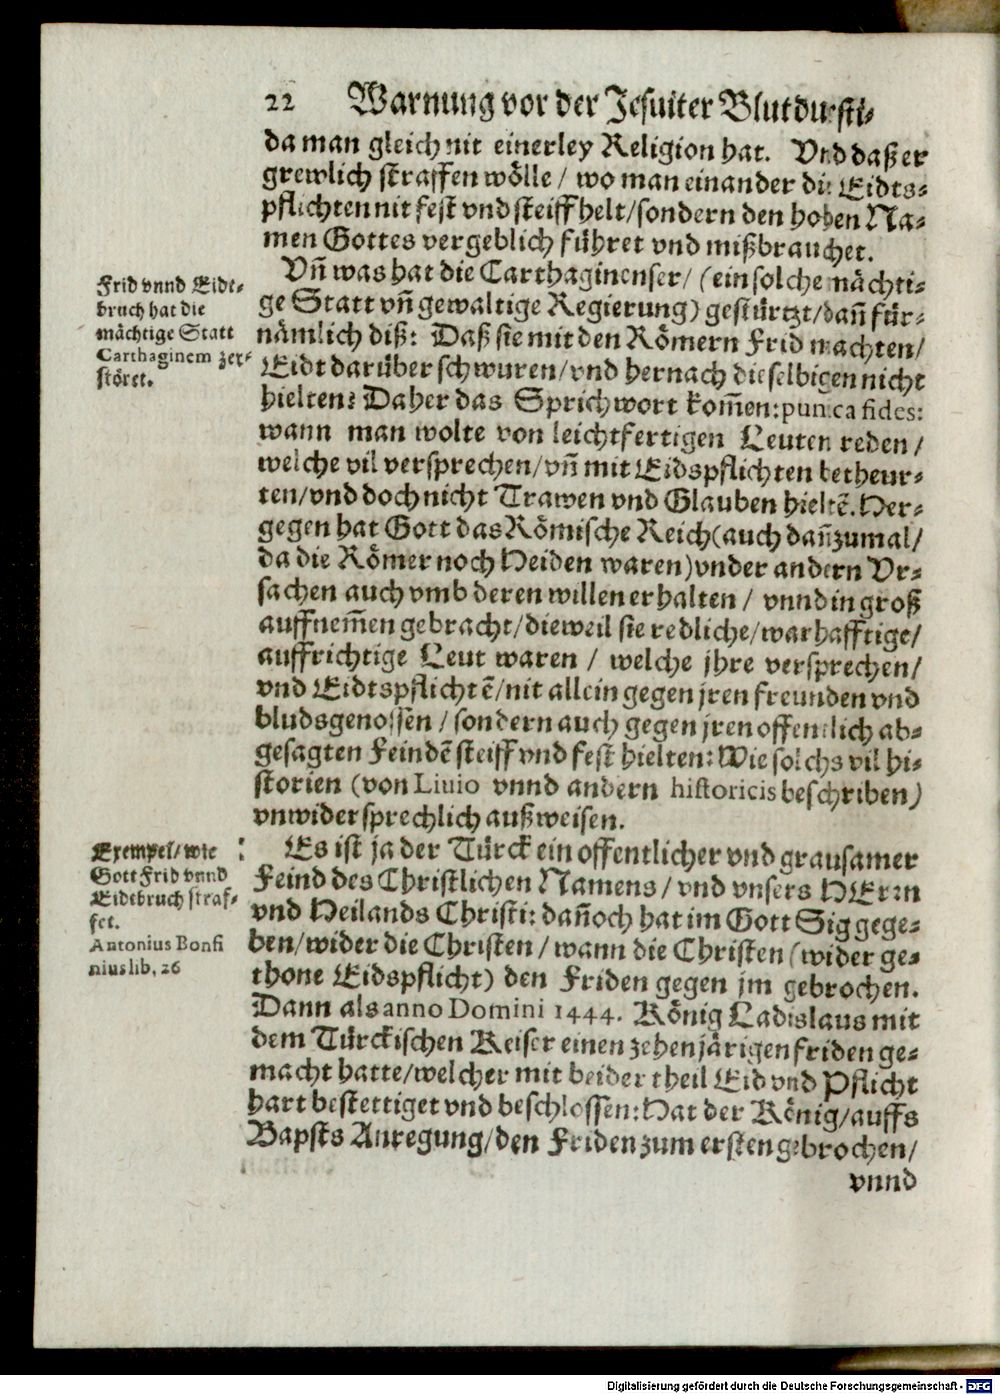 22 Warnung vor der Jesuiter Blutdursti-
da man gleich nit einerley Religion hat. Vnd daß er
grewlich straffen wölle / wo man einander die Eidts-
pflichten nit fest vnd steiff helt/sondern den hohen Na-
men Gottes vergeblich führet vnd mißbrauchet.
Frid vnnd Eidt-
bruch hat die
mächtige Statt
Carthaginem zer-
störet.
Vñ was hat die Carthaginenser/ (ein solche mächti-
ge Statt vñ gewaltige Regierung) gestürtzt/dañ für-
nämlich diß: Daß sie mit den Römern Frid machten/
Eidt darüber schwuren/vnd hernach dieselbigen nicht
hielten? Daher das Sprichwort kom̃en: punica fides:
wann man wolte von leichtfertigen Leuten reden/
welche vil versprechen/vñ mit Eidspflichten betheur-
ten/vnd doch nicht Trawen vnd Glauben hieltẽ. Her-
gegen hat Gott das Römische Reich (auch dañzumal/
da die Römer noch Heiden waren) vnder andern Vr-
sachen auch vmb deren willen erhalten / vnnd in groß
auffnem̃en gebracht/dieweil sie redliche/warhafftige/
auffrichtige Leut waren / welche jhre versprechen/
vnd Eidtspflichtẽ/nit allein gegen jren freunden vnd
bludsgenossen / sondern auch gegen jren offentlich ab-
gesagten Feindẽ steiff vnd fest hielten: Wie solchs vil hi-
storien (von Liuio vnnd andern historicis beschriben)
vnwidersprechlich außweisen.
Exempel/wie
Gott Frid vnnd
Eidtbruch straf-
fet.
Antonius Bonfi
nius lib, 26
Es ist ja der Türck ein offentlicher vnd grausamer
Feind des Christlichen Namens / vnd vnsers HErrn
vnd Heilands Christi: dañoch hat im Gott Sig gege-
ben/wider die Christen / wann die Christen (wider ge-
thone Eidspflicht) den Friden gegen jm gebrochen.
Dann als anno Domini 1444. König Ladislaus mit
dem Türckischen Keiser einen zehenjärigen friden ge-
macht hatte/welcher mit beider theil Eid vnd Pflicht
hart bestettiget vnd beschlossen: Hat der König/auffs
Bapsts Anregung/den Friden zum ersten gebrochen/
vnnd
Digitalisierung gefördert durch die Deutsche Forschungsgemeinschaft - DFG